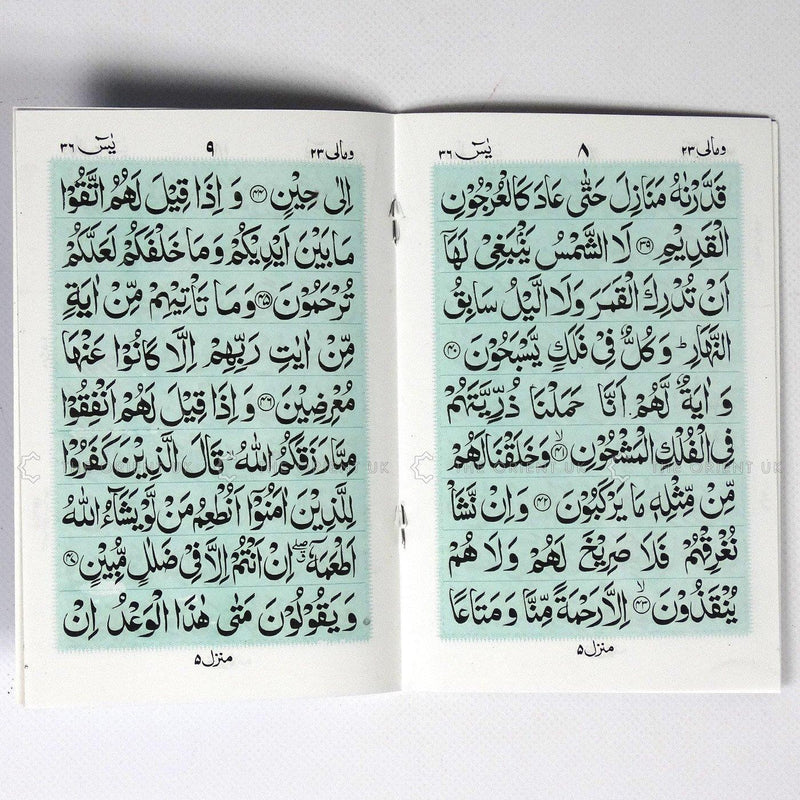 ومالی ۲۳ ۸ یٰسٓ ۳۶
قَدَّرۡنٰهُ مَنَازِلَ حَتّٰى عَادَ كَالۡعُرۡجُوۡنِ
الۡقَدِيۡمِ ﴿۳۹﴾ لَا الشَّمۡسُ يَنۡۢبَغِىۡ لَهَاۤ
اَنۡ تُدۡرِكَ الۡقَمَرَ وَلَا الَّيۡلُ سَابِقُ
النَّهَارِ‌ؕ وَكُلٌّ فِىۡ فَلَكٍ يَّسۡبَحُوۡنَ ﴿۴۰﴾
وَ اٰيَةٌ لَّهُمۡ اَنَّا حَمَلۡنَا ذُرِّيَّتَهُمۡ
فِى الۡفُلۡكِ الۡمَشۡحُوۡنِۙ ﴿۴۱﴾ وَخَلَقۡنَا لَهُمۡ
مِّنۡ مِّثۡلِهٖ مَا يَرۡكَبُوۡنَ ﴿۴۲﴾ وَاِنۡ نَّشَاۡ
نُغۡرِقۡهُمۡ فَلَا صَرِيۡخَ لَهُمۡ وَلَا هُمۡ
يُنۡقَذُوۡنَۙ ﴿۴۳﴾ اِلَّا رَحۡمَةً مِّنَّا وَمَتَاعًا
منزل ۵
ومالی ۲۳ ۹ یٰسٓ ۳۶
اِلٰى حِيۡنٍ ﴿۴۴﴾ وَ اِذَا قِيۡلَ لَهُمُ اتَّقُوۡا
مَا بَيۡنَ اَيۡدِيۡكُمۡ وَمَا خَلۡفَكُمۡ لَعَلَّكُمۡ
تُرۡحَمُوۡنَ ﴿۴۵﴾ وَمَا تَاۡتِيۡهِمۡ مِّنۡ اٰيَةٍ
مِّنۡ اٰيٰتِ رَبِّهِمۡ اِلَّا كَانُوۡا عَنۡهَا
مُعۡرِضِيۡنَ ﴿۴۶﴾ وَ اِذَا قِيۡلَ لَهُمۡ اَنۡفِقُوۡا
مِمَّا رَزَقَكُمُ اللّٰهُ ۙ قَالَ الَّذِيۡنَ كَفَرُوۡا
لِلَّذِيۡنَ اٰمَنُوۡۤا اَنُطۡعِمُ مَنۡ لَّوۡ يَشَآءُ اللّٰهُ
اَطۡعَمَهٗۤ ‌ۖ اِنۡ اَنۡتُمۡ اِلَّا فِىۡ ضَلٰلٍ مُّبِيۡنٍ ﴿۴۷﴾
وَ يَقُوۡلُوۡنَ مَتٰى هٰذَا الۡوَعۡدُ اِنۡ
منزل ۵
THE ORIENT UK
THE ORIENT UK
THE ORIENT UK